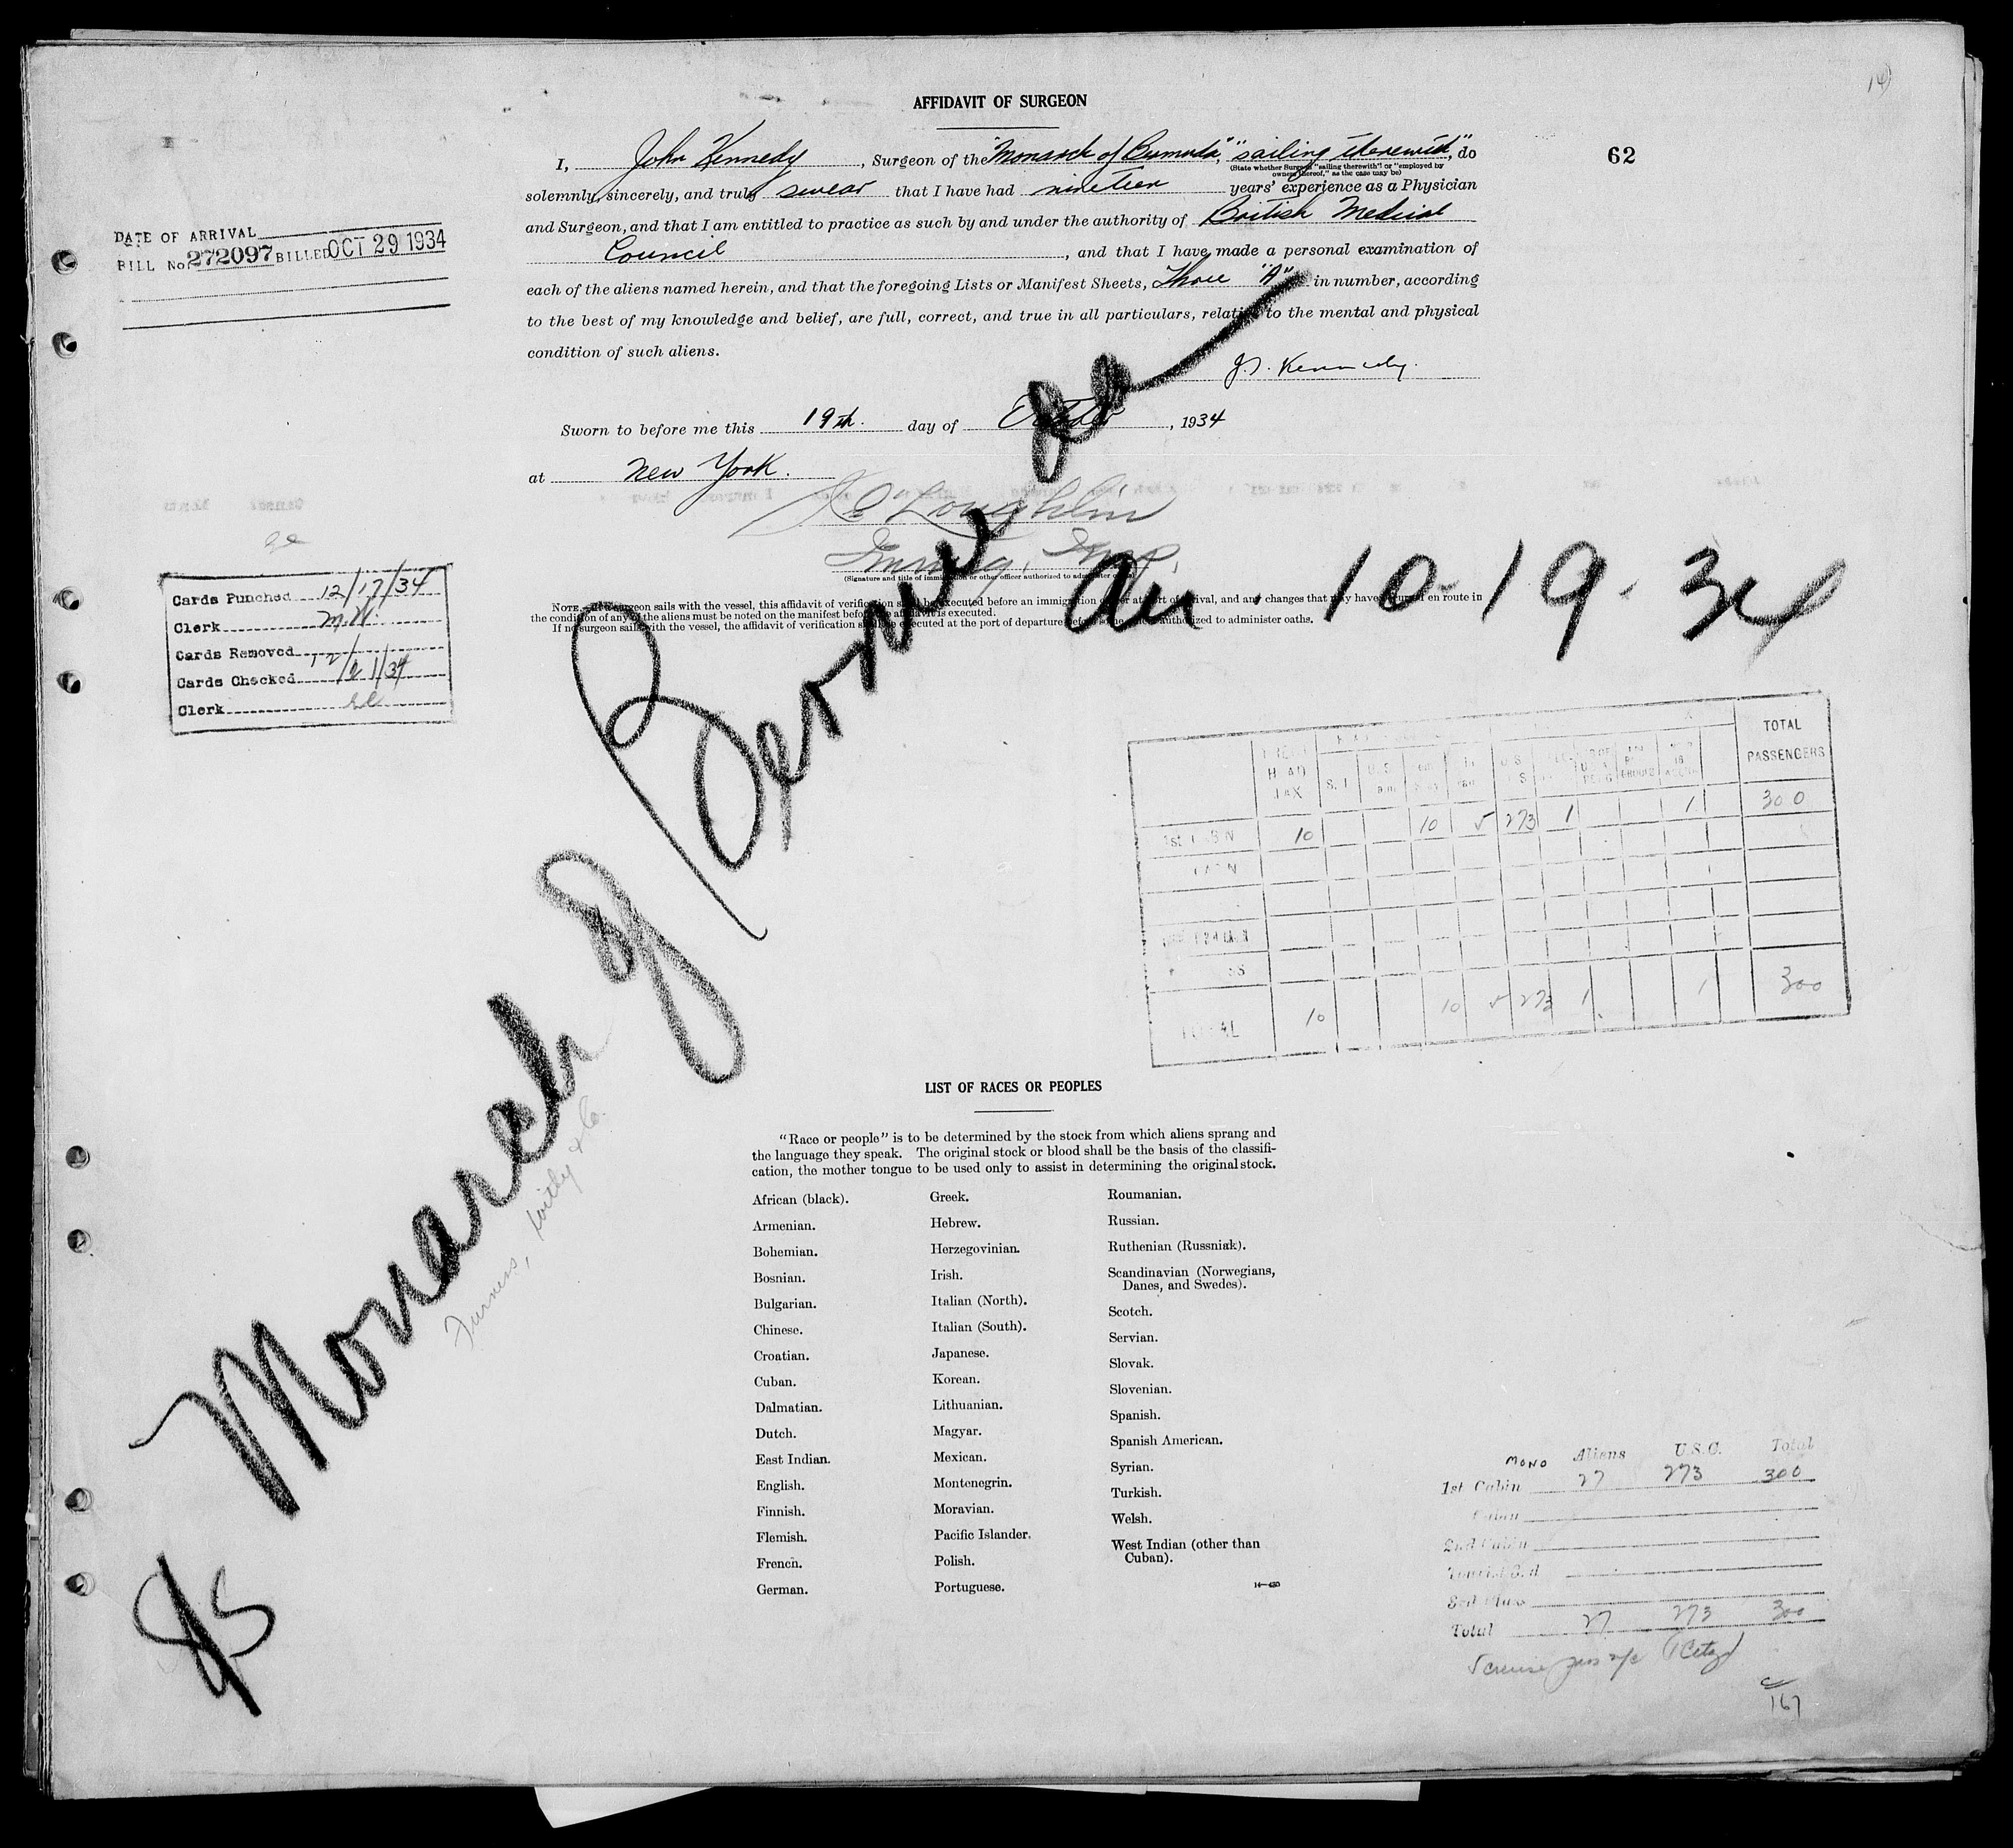 14)
AFFIDAVIT OF SURGEON
62
I, John Kennedy, Surgeon of the "Monarch of Bermuda", "sailing therewith", do
(State whether Surgeon "sailing therewith" or "employed by
owners thereof," as the case may be)
solemnly, sincerely, and truly swear that I have had nineteen years' experience as a Physician
and Surgeon, and that I am entitled to practice as such by and under the authority of British Medical
Council, and that I have made a personal examination of
each of the aliens named herein, and that the foregoing Lists or Manifest Sheets, three "A" in number, according
to the best of my knowledge and belief, are full, correct, and true in all particulars, relative to the mental and physical
condition of such aliens.
J. Kennedy.
Sworn to before me this 19th. day of October, 1934
at New York.
Loughlin
Immig. Insp.
(Signature and title of immigration or other officer authorized to administer oaths)
NOTE.—If a surgeon sails with the vessel, this affidavit of verification shall be executed before an immigration officer at port of arrival, and any changes that may have occurred en route in
the condition of any of the aliens must be noted on the manifest before the affidavit is executed.
If no surgeon sails with the vessel, the affidavit of verification shall be executed at the port of departure before an officer authorized to administer oaths.
DATE OF ARRIVAL
BILL No. 272097 BILLED OCT 29 1934
Cards Punched 12/17/34
Clerk M.W.
Cards Removed
Cards Checked 12/21/34
Clerk
Monarch of Bermuda
Arr. 10-19-34
Furness, Withy & Co.
TOTAL
PASSENGERS
HEAD
TAX
1st CABIN 10 10 5 273 1 1 300
TOTAL 10 10 5 273 1 1 300
LIST OF RACES OR PEOPLES
"Race or people" is to be determined by the stock from which aliens sprang and
the language they speak. The original stock or blood shall be the basis of the classifi-
cation, the mother tongue to be used only to assist in determining the original stock.
African (black).
Armenian.
Bohemian.
Bosnian.
Bulgarian.
Chinese.
Croatian.
Cuban.
Dalmatian.
Dutch.
East Indian.
English.
Finnish.
Flemish.
French.
German.
Greek.
Hebrew.
Herzegovinian.
Irish.
Italian (North).
Italian (South).
Japanese.
Korean.
Lithuanian.
Magyar.
Mexican.
Montenegrin.
Moravian.
Pacific Islander.
Polish.
Portuguese.
Roumanian.
Russian.
Ruthenian (Russniak).
Scandinavian (Norwegians,
Danes, and Swedes).
Scotch.
Servian.
Slovak.
Slovenian.
Spanish.
Spanish American.
Syrian.
Turkish.
Welsh.
West Indian (other than
Cuban).
14—430
MONO Aliens U.S.C. Total
1st Cabin 27 273 300
Cabin
2nd Cabin
Tourist 3rd
3rd Class
Total 27 273 300
5 cruise
167